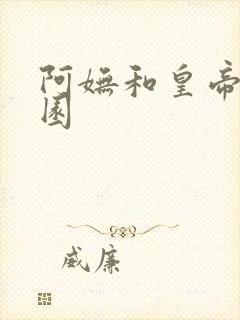 阿嫵和皇帝
園
威廉